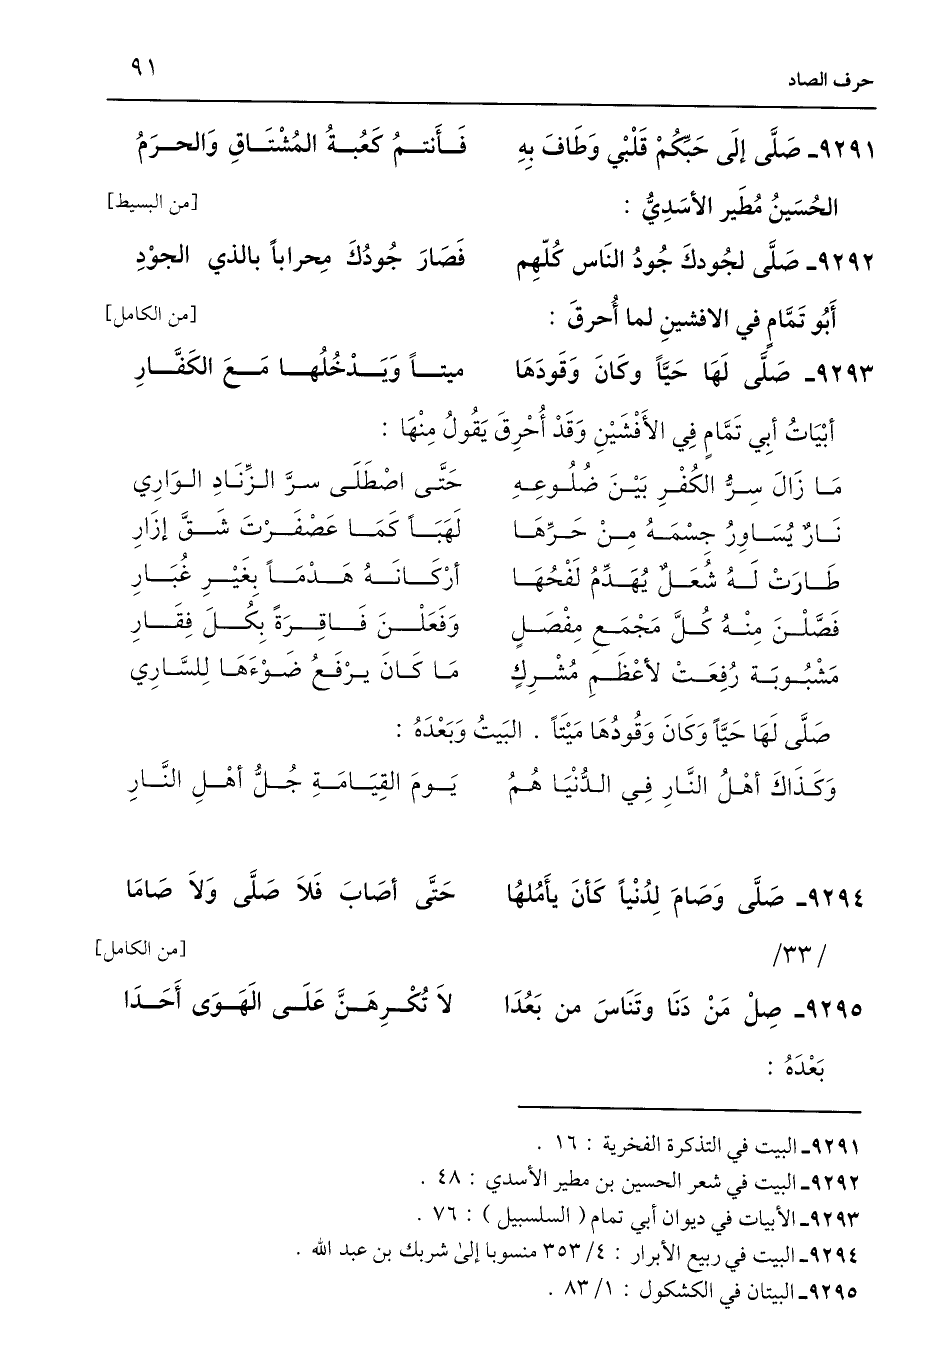 حرف الصاد ٩١
٩٢٩١ـ صَلَّى إلَى حَبِّكُمْ قَلْبي وَطَافَ بِهِ فَأَنتمُ كَعُبةُ المُشْتَاقِ وَالحرَمُ
الحُسَينُ مُطَير الأسَدِيُّ : [من البسيط]
٩٢٩٢ـ صَلَّى لجُودكَ جُودُ النَاس كُلّهِم فَصَارَ جُودُكَ مِحراباً بالذي الجوْدِ
أَبُو تَمَّامٍ في الافشينِ لما أُحرقَ : [من الكامل]
٩٢٩٣ـ صَلَّى لَهَا حَيَّاً وكَانَ وَقودَهَا ميتاً وَيَدْخُلُها مَعَ الكَفَّارِ
أبْيَاتُ أبي تَمَّامٍ فِي الأَفْشَيْنِ وَقَدْ أُحْرِقَ يَقُولُ مِنْهَا :
مَا زَالَ سِرُّ الكُفْرِ بَيْنَ ضُلُوعِهِ حَتَّى اصْطَلَى سرَّ الزِّنَادِ الوَارِي
نَارٌ يُسَاوِرُ جِسْمَهُ مِنْ حَرِّهَا لَهَبَاً كَمَا عَصْفَرْتَ شَقَّ إزَارِ
طَارَتْ لَهُ شُعَلٌ يُهَدِّمُ لَفْحُهَا أرْكَانَهُ هَدْمَاً بِغَيْرِ غُبَارِ
فَصَّلْنَ مِنْهُ كُلَّ مَجْمَعِ مِفْصَلٍ وَفَعَلْنَ فَاقِرَةً بِكُلّ فِقَارِ
مَشْبُوبَة رُفِعَتْ لأعْظَمِ مُشْرِكٍ مَا كَانَ يرْفَعُ ضَوْءَهَا لِلسَّارِي
صَلَّى لَهَا حَيَّاً وَكَانَ وَقُودُهَا مَيْتَاً . البَيتُ وَبَعْدَهُ :
وَكَذَاكَ أهْلُ النَارِ فِي الدُّنْيَا هُمُ يَومَ القِيَامَةِ جُلُّ أهْلِ النَّارِ
٩٢٩٤ـ صَلَّى وَصَامَ لِدُنْيَاً كَأنَ يأَمُلهُا حَتَّى أصَابَ فَلاَ صَلَّى وَلاَ صَامَا
/٣٣/ [من الكامل]
٩٢٩٥ـ صِلْ مَنْ دَنَا وتَنَاسَ من بَعُدَا لاَ تُكْرِهَنَّ عَلَى الَهوَى أَحَدَا
بَعْدَهُ :
٩٢٩١ـ البيت في التذكرة الفخرية : ١٦ .
٩٢٩٢ـ البيت في شعر الحسين بن مطير الأسدي : ٤٨ .
٩٢٩٣ـ الأبيات في ديوان أبي تمام ( السلسبيل ) : ٧٦ .
٩٢٩٤ـ البيت في ربيع الأبرار : ٤/ ٣٥٣ منسوبا إلىٰ شربك بن عبد الله .
٩٢٩٥ـ البيتان في الكشكول : ١/ ٨٣ .